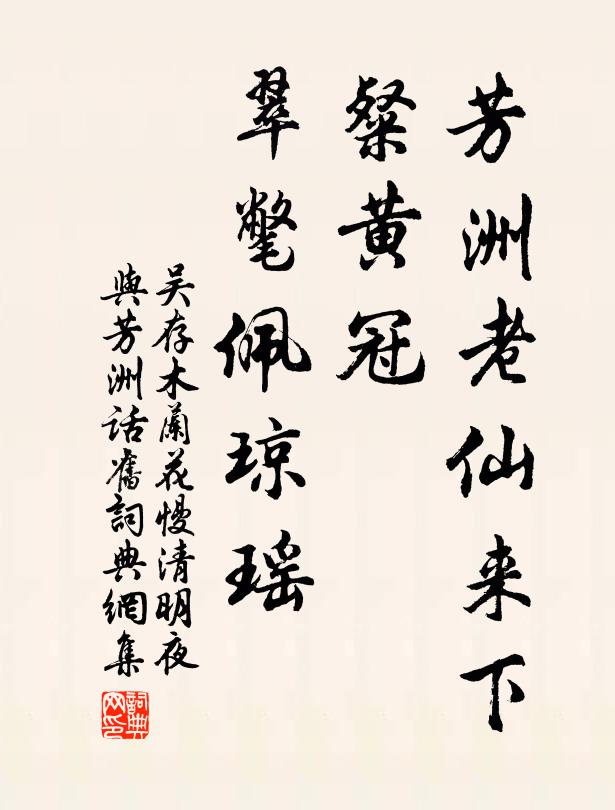 芳洲老仙来下
粲黄冠
翠氅佩琼瑶
吴存木蘭花慢清明夜
與芳洲话舊詞典網集
詞典网印